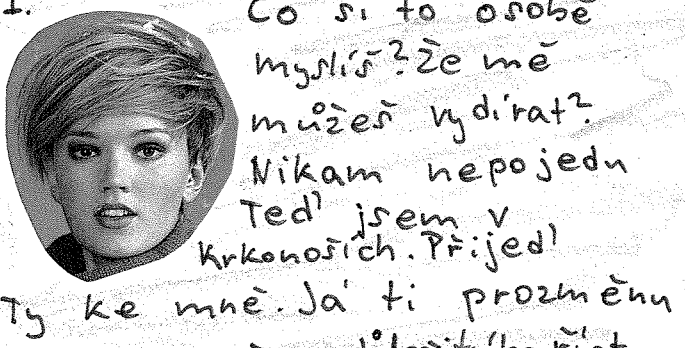 1.
Co si to o sobě
myslíš? Že mě
můžeš vydírat?
Nikam nepojedu
Teď jsem v
Krkonoších. Přijeď
Ty ke mně. Já ti prozměnu